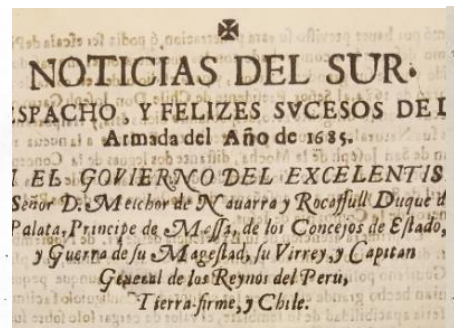 NOTICIAS DEL SUR.
ESPACHO, Y FELIZES SVCESOS DE L
Armada del Año de 1685.
EL GOVIERNO DEL EXCELENTIS
Señor D. Melchor de Nauarra y Rocaffull Duque d
Palata, Principe de Massa, de los Concejos de Estado,
y Guerra de su Magestad, su Virrey, y Capitan
General de los Reynos del Perù,
Tierra-firme, y Chile.